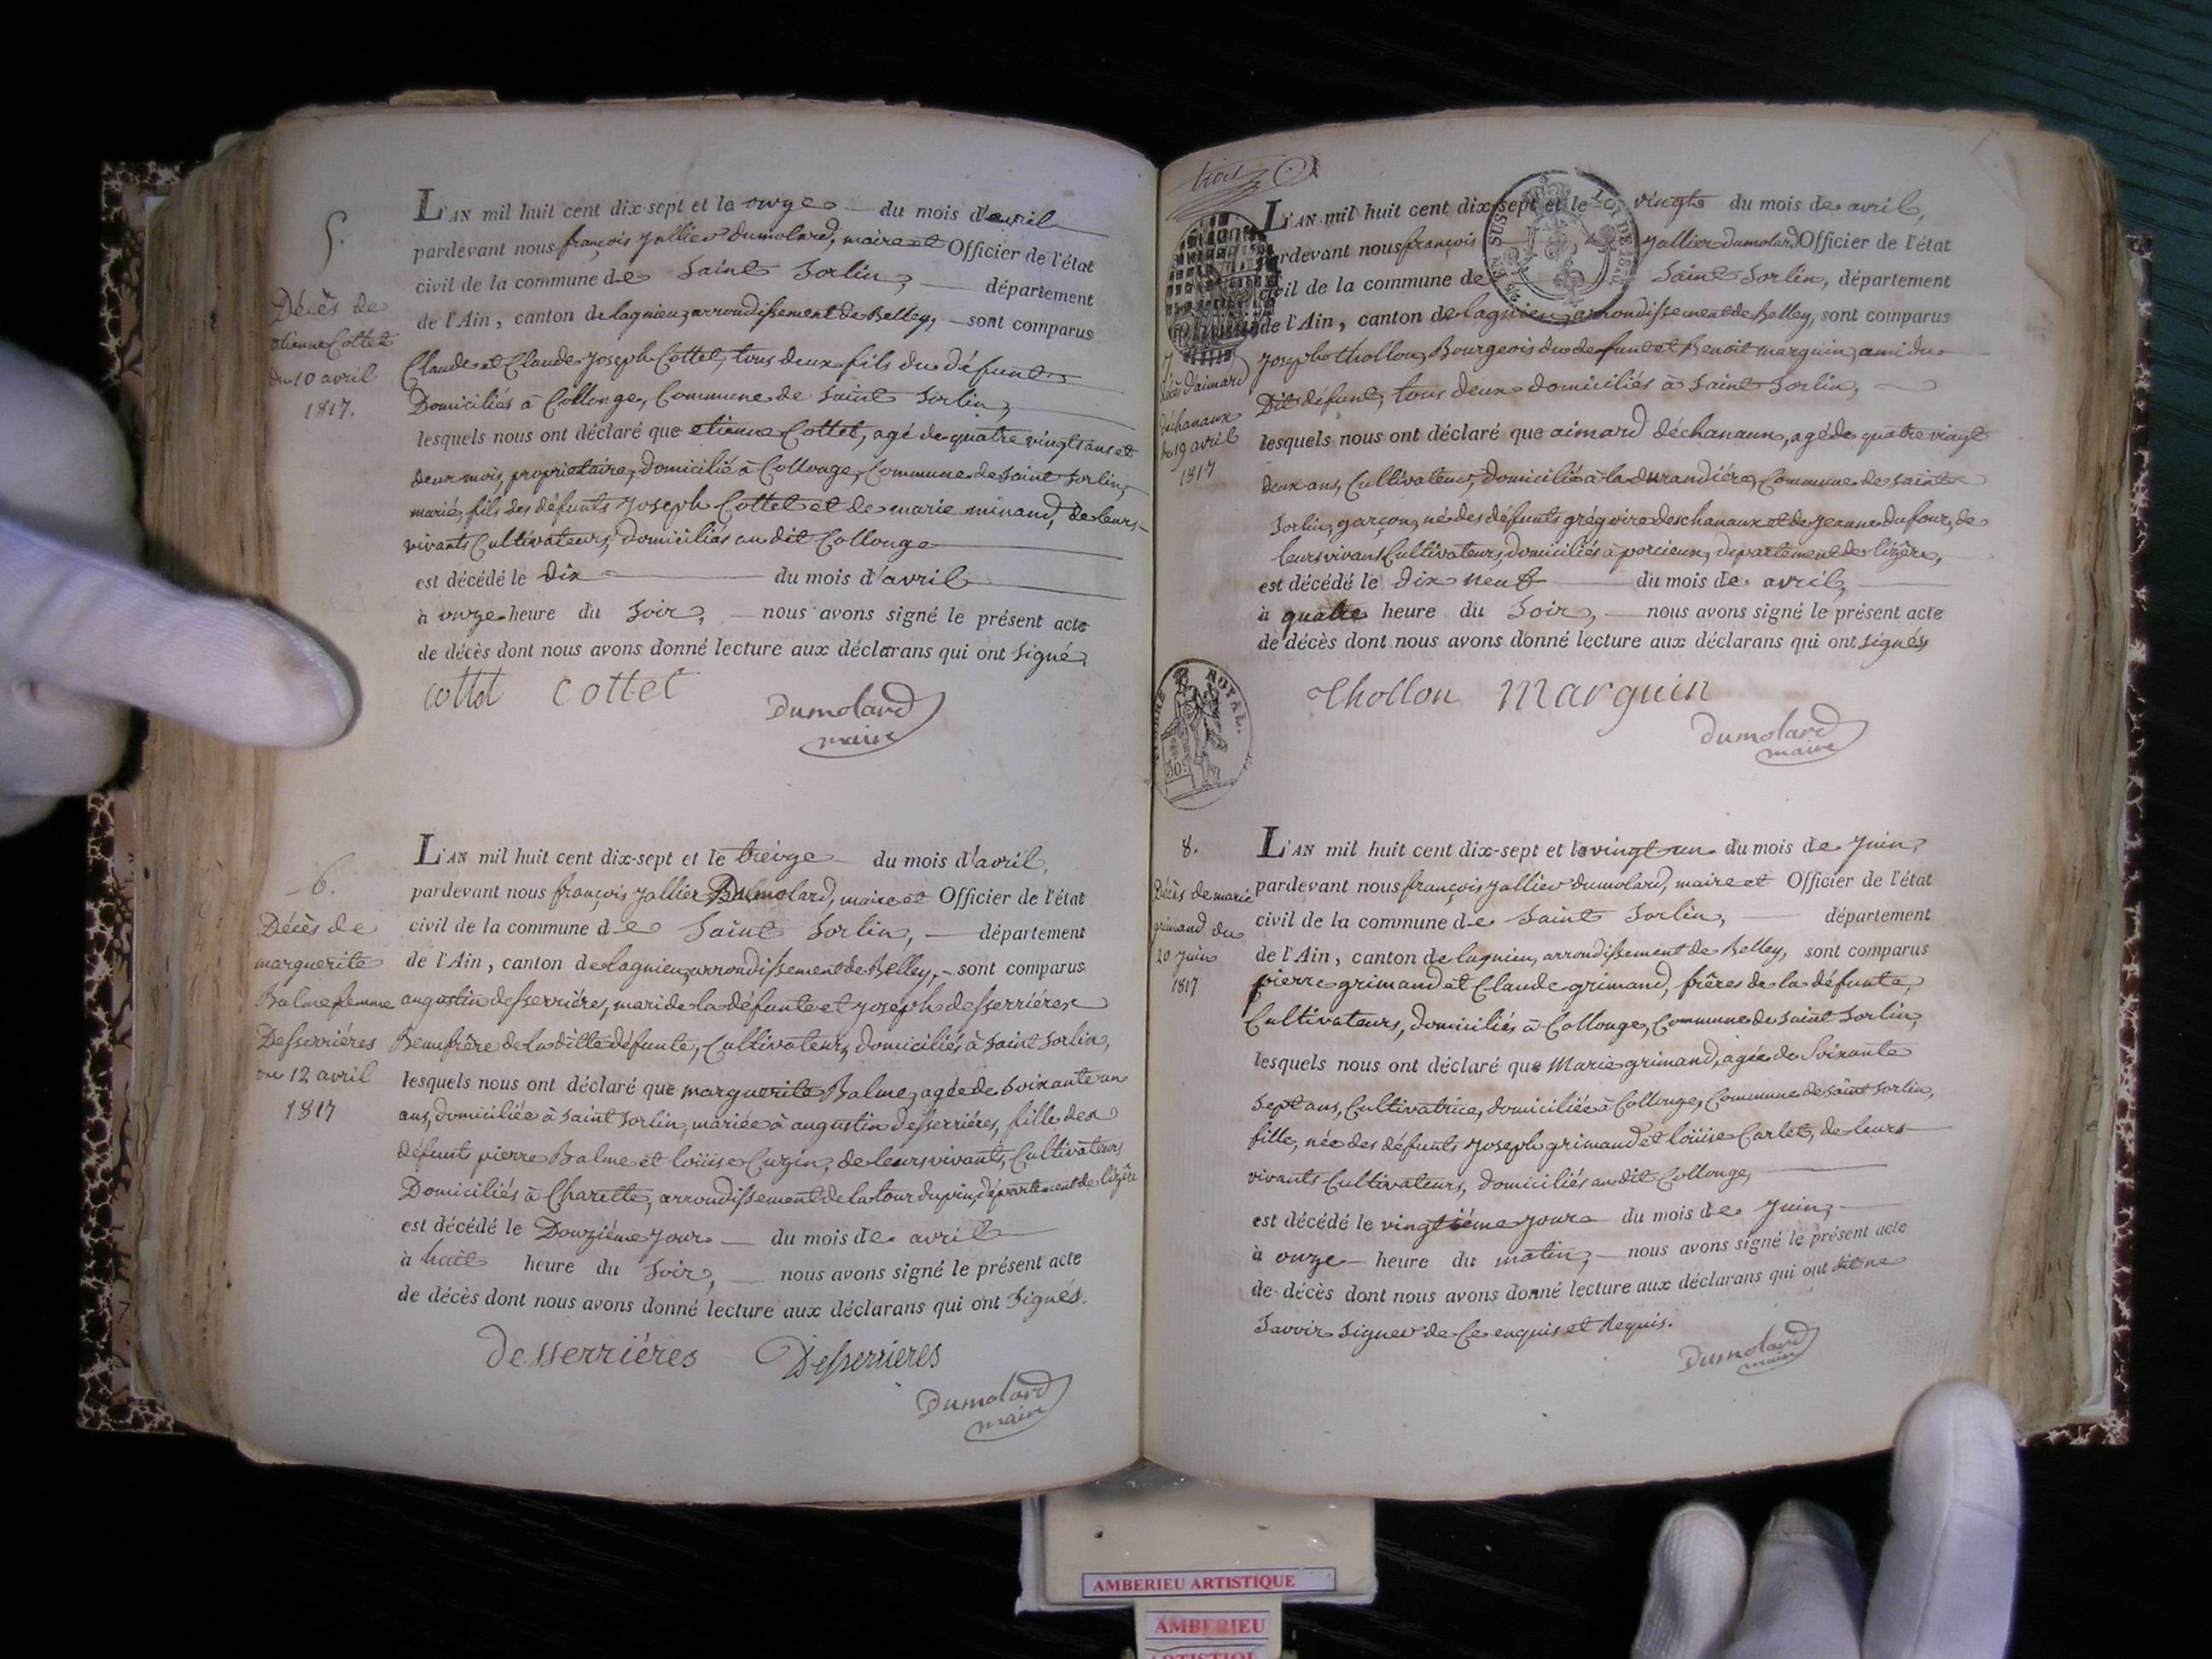 5.
Décès de
etienne Cottet
du 10 avril
1817.
L'AN mil huit cent dix-sept et le onze du mois d'avril
pardevant nous françois jallier dumolard, maire et Officier de l'état
civil de la commune de Saint Sorlin, département
de l'Ain, canton de lagnieu, arrondissement de Belley, sont comparus
Claude et Claude joseph Cottet, tous deux fils du défunt
Domiciliés à Collonge, Commune de Saint Sorlin,
lesquels nous ont déclaré que etienne Cottet, agé de quatre vingts ans et
deux mois, proprietaire, domicilié à Collonge, Commune de Saint Sorlin,
marié, fils des défunts joseph Cottet et de marie minand, de leurs
vivants Cultivateurs, Domiciliés au dit Collonge
est décédé le dix du mois d'avril
à onze heure du Soir, nous avons signé le présent acte
de décès dont nous avons donné lecture aux déclarans qui ont signé.
cottet cottet
Dumolard
maire
6.
Décès de
marguerite
Balme femme
Desserriéres
du 12 avril
1817
L'AN mil huit cent dix-sept et le treize du mois d'avril,
pardevant nous françois jallier Dumolard, maire et Officier de l'état
civil de la commune de Saint Sorlin, département
de l'Ain, canton de lagnieu, arrondissement de Belley, sont comparus
augustin desserriéres, mari de la défunte et joseph desserriéres
Beaufrère de la ditte défunte, Cultivateurs, domiciliés à Saint Sorlin,
lesquels nous ont déclaré que marguerite Balme, agée de soixante un
ans, domiciliée à Saint Sorlin, mariée à augustin desserriéres, fille des
défunts pierre Balme et loüise Cuzin, de leurs vivants, Cultivateurs
Domiciliés à Charette, arrondissement de latour dupin, département de lizère
est décédé le Douziéme jour du mois de avril
à huit heure du Soir, nous avons signé le présent acte
de décès dont nous avons donné lecture aux déclarans qui ont signés.
desserriéres Desserrieres
Dumolard
maire
trois
SUS LOI DE 1816
7.
décès d'aimard
déchanaux
du 19 avril
1817
L'AN mil huit cent dix-sept et le vingt du mois de avril,
pardevant nous françois jallier dumolard Officier de l'état
civil de la commune de Saint Sorlin, département
de l'Ain, canton de lagnieu, arrondissement de Belley, sont comparus
joseph thollon, Bourgeois du defunt et Benoit marguin, ami du
Dit défunt, tous deux domiciliés à Saint Sorlin,
lesquels nous ont déclaré que aimard déchanaux, agé de quatre vingt
deux ans, Cultivateur, domicilié à la durandiére, Commune de Saint
Sorlin, garçon, né des défunts grégoire deschanaux et de jeanne dufour, de
leurs vivans Cultivateurs, domiciliés à porcieux, departement de lizère,
est décédé le dix neuf du mois de avril,
à quatre heure du Soir, nous avons signé le présent acte
de décès dont nous avons donné lecture aux déclarans qui ont signés
Thollon Marguin
dumolard
maire
TIMBRE ROYAL.
50
8.
Décès de marie
grimand du
20 juin
1817
L'AN mil huit cent dix-sept et le vingt un du mois de Juin,
pardevant nous françois jallier dumolard, maire et Officier de l'état
civil de la commune de Saint Sorlin, département
de l'Ain, canton de lagnieu, arrondissement de Belley, sont comparus
pierre grimand et Claude grimand, frères de la défunte,
Cultivateurs, domiciliés à Collonge, Commune de Saint Sorlin,
lesquels nous ont déclaré que Marie grimand, agée de Soixante
Sept ans, Cultivatrice, domiciliée à Collonge, Commune de Saint Sorlin,
fille, née des défunts joseph grimand et loüise Carlet, de leurs
vivants Cultivateurs, domiciliés au dit Collonge,
est décédé le vingtiéme jour du mois de Juin,
à onze heure du matin, nous avons signé le présent acte
de décès dont nous avons donné lecture aux déclarans qui ont dit ne
Savoir signer de Ce enquis et Requis.
Dumolard
maire
AMBERIEU ARTISTIQUE
AMBERIEU
ARTISTIQUE